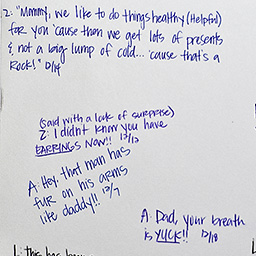 Z: "Mommy, we like to do things healthy (Helpful)
for you 'cause then we get lots of presents
& not a big lump of cold... 'cause that's a
Rock!" 12/14
(said with a look of surprise)
Z: I didn't know you have
EARRINGS NOW!! 12/13
A: Hey, that man has
fur on his arms
like daddy!! 12/7
A: Dad, your breath
is YUCK!! 12/18